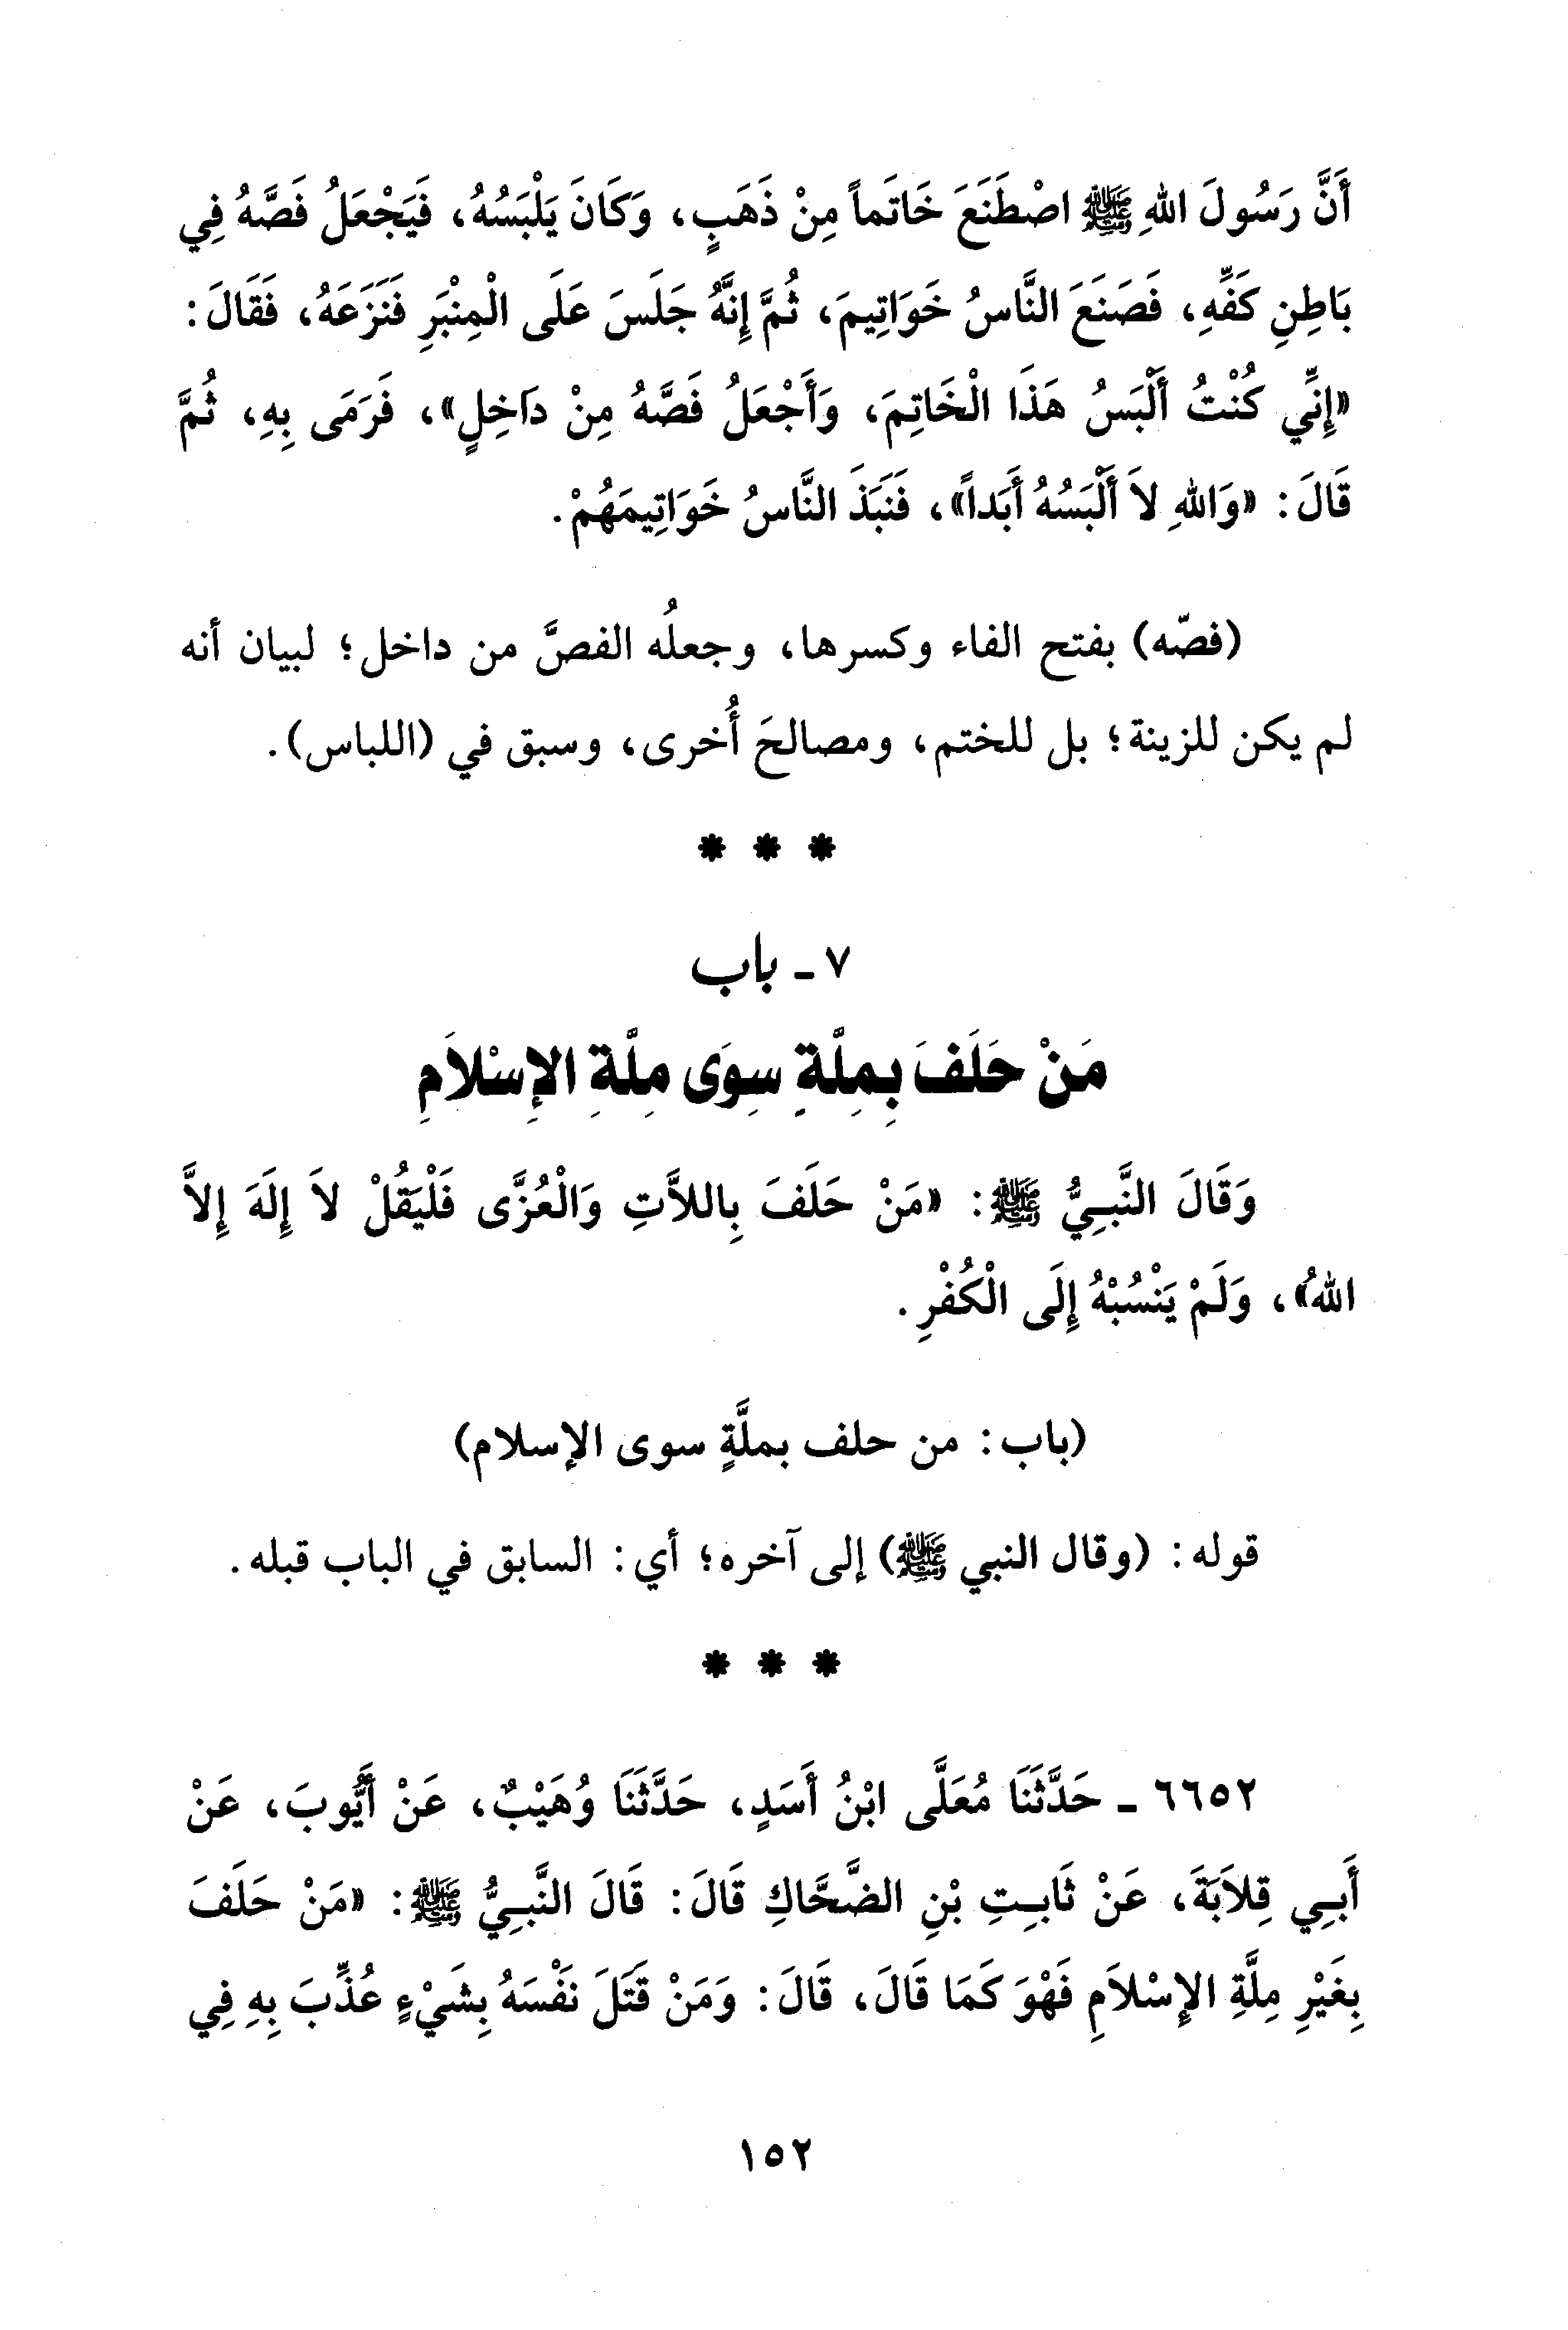 أَنَّ رَسُولَ اللهِ ﷺ اصْطَنَعَ خَاتَماً مِنْ ذَهَبٍ، وَكَانَ يَلْبَسُهُ، فَيَجْعَلُ فَصَّهُ فِي
بَاطِنِ كَفِّهِ، فَصَنَعَ النَّاسُ خَوَاتِيمَ، ثُمَّ إِنَّهُ جَلَسَ عَلَى الْمِنْبَرِ فَنَزَعَهُ، فَقَالَ:
«إِنِّي كُنْتُ أَلْبَسُ هَذَا الْخَاتِمَ، وَأَجْعَلُ فَصَّهُ مِنْ دَاخِلٍ»، فَرَمَى بِهِ، ثُمَّ
قَالَ: «وَاللهِ لاَ أَلْبَسُهُ أَبَداً»، فَنَبَذَ النَّاسُ خَوَاتِيمَهُمْ.
(فصّه) بفتح الفاء وكسرها، وجعلُه الفصَّ من داخل؛ لبيان أنه
لم يكن للزينة؛ بل للختم، ومصالحَ أُخرى، وسبق في (اللباس).
* * *
٧ - باب
مَنْ حَلَفَ بِمِلَّةٍ سِوَى مِلَّةِ الإِسْلاَمِ
وَقَالَ النَّبِيُّ ﷺ: «مَنْ حَلَفَ بِاللاَّتِ وَالْعُزَّى فَلْيَقُلْ لاَ إِلَهَ إِلاَّ
اللهُ»، وَلَمْ يَنْسُبْهُ إِلَى الْكُفْرِ.
(باب: من حلف بملَّةٍ سوى الإسلام)
قوله: (وقال النبي ﷺ) إلى آخره؛ أي: السابق في الباب قبله.
* * *
٦٦٥٢ - حَدَّثَنَا مُعَلَّى ابْنُ أَسَدٍ، حَدَّثَنَا وُهَيْبٌ، عَنْ أَيُّوبَ، عَنْ
أَبِي قِلاَبَةَ، عَنْ ثَابِتِ بْنِ الضَّحَّاكِ قَالَ: قَالَ النَّبِيُّ ﷺ: «مَنْ حَلَفَ
بِغَيْرِ مِلَّةِ الإِسْلاَمِ فَهْوَ كَمَا قَالَ، قَالَ: وَمَنْ قَتَلَ نَفْسَهُ بِشَيْءٍ عُذِّبَ بِهِ فِي
١٥٢